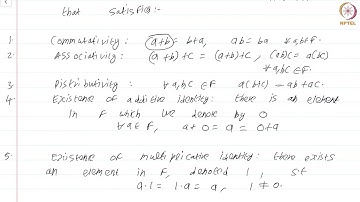 NPTEL
that satisfies:-
1. Commutativity: (a+b)= b+a, ab=ba ∀ a,b∈F.
2. Associativity: (a+b)+c = (a+b)+c, (ab)c = a(bc)
∀ a,b,c ∈ F.
3. Distributivity: ∀ a,b,c ∈ F a(b+c) = ab+ac
4. Existence of additive identity: there is an element
in F which we denote by 0
∀ a ∈ F, a+0 = a = 0+a
5. Existence of multiplicative identity: there exists
an element in F, denoted 1, st
a.1 = 1.a = a, 1 ≠ 0.